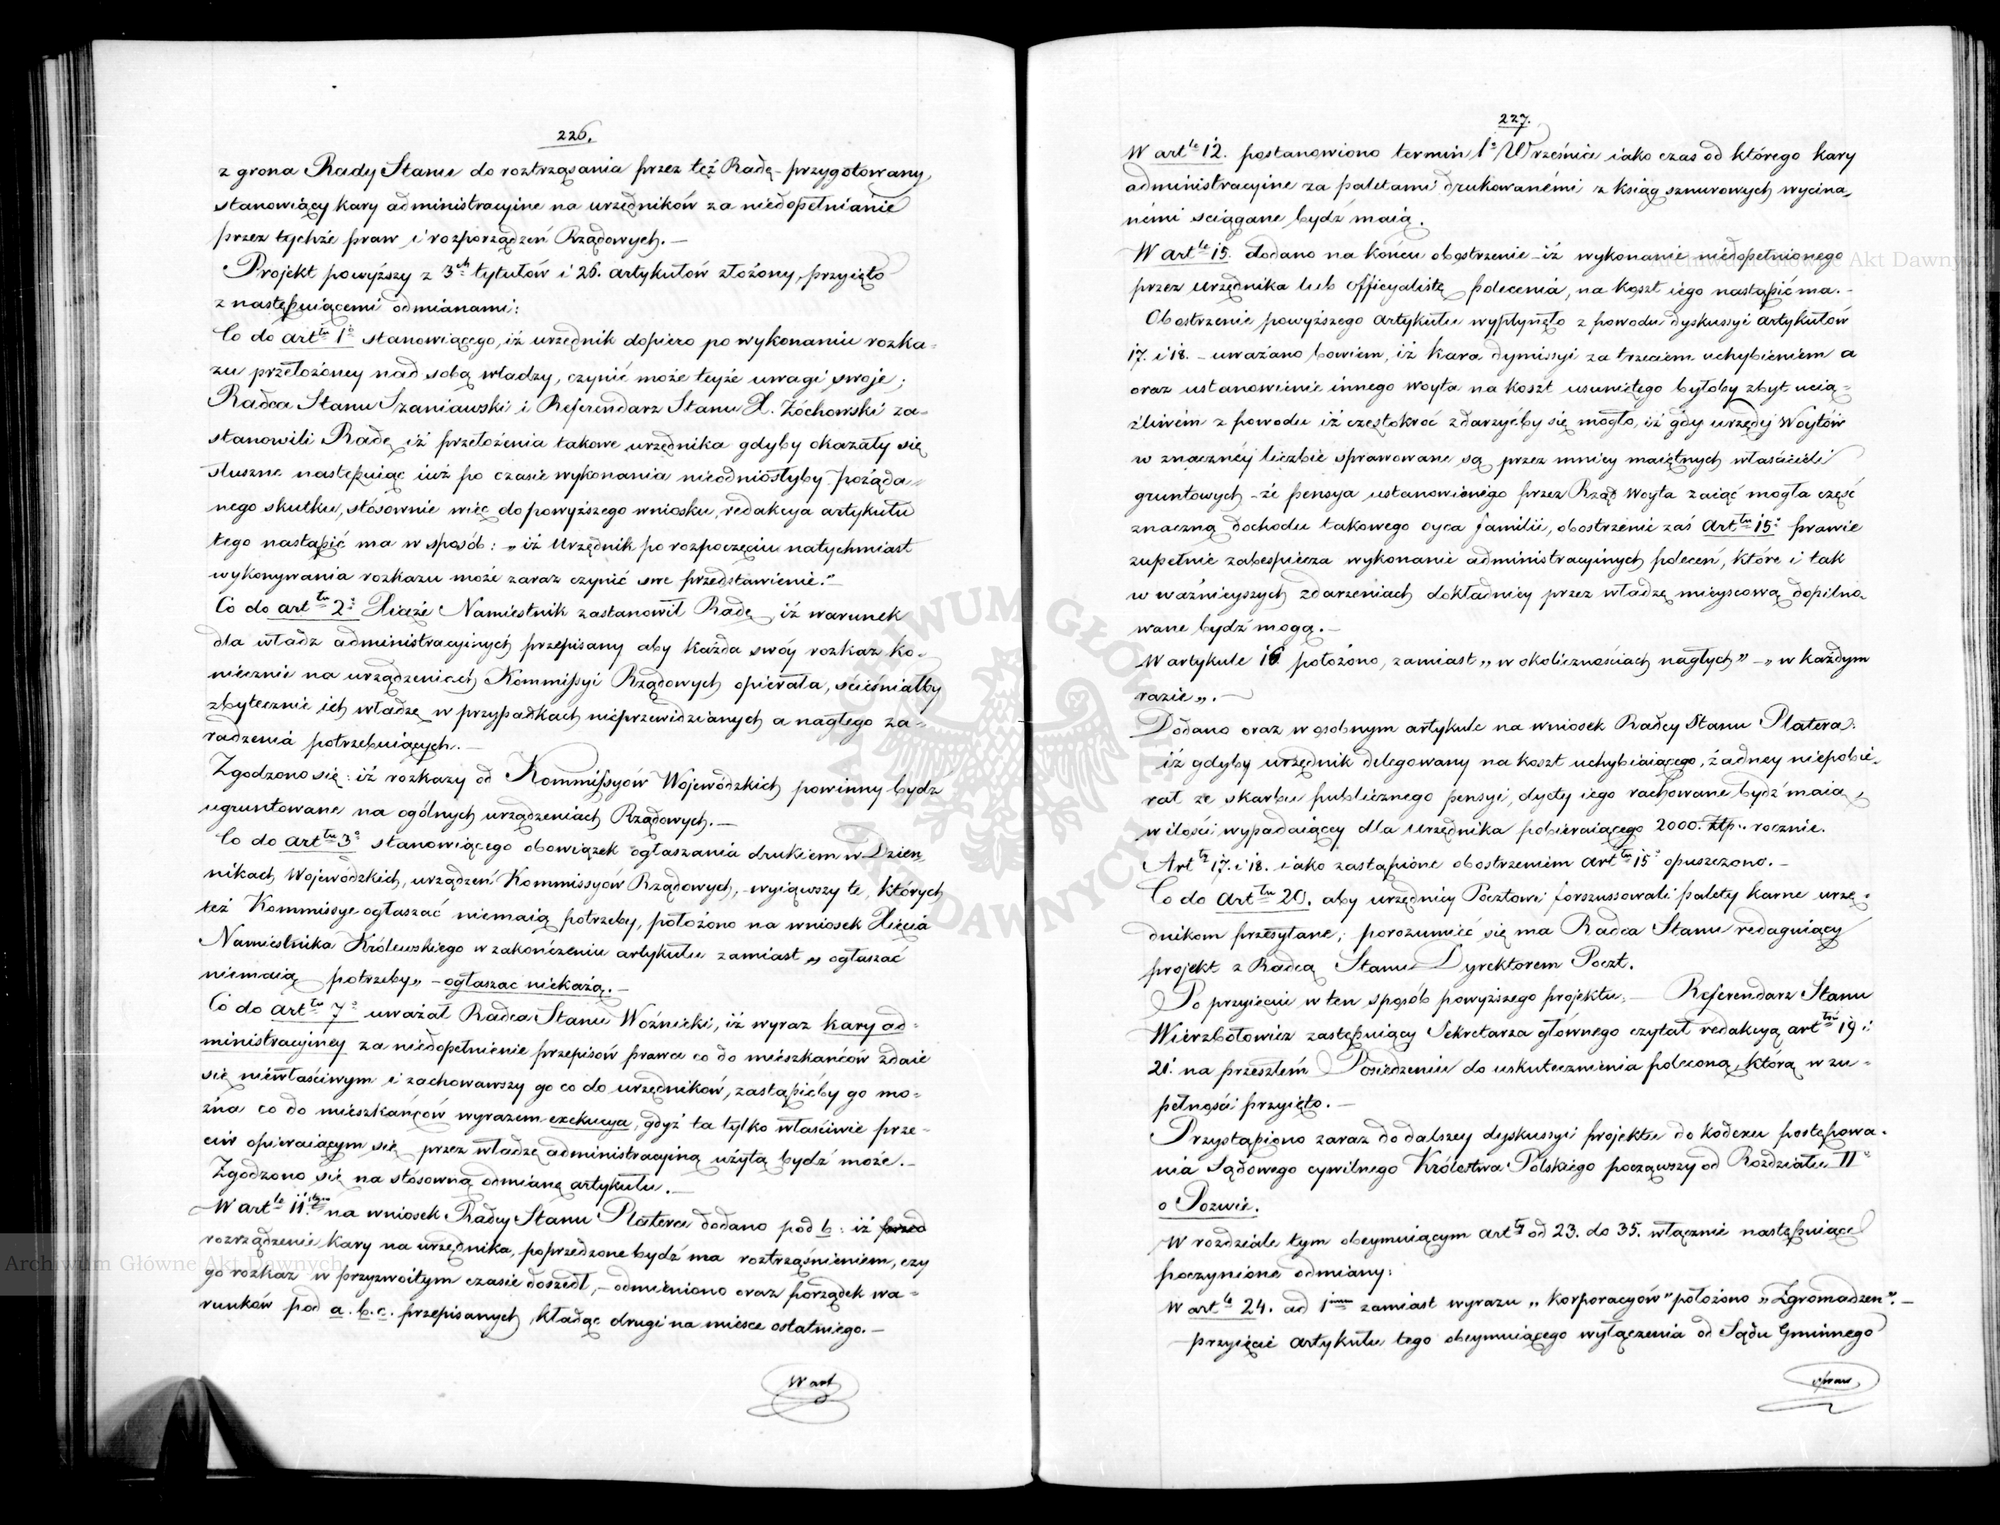 226.
z grona Rady Stanu do roztrząsania przez też Radę przygotowany,
stanowiący kary administracyine na urzędników za niedopełnianie
przez tychże praw i rozporządzeń Rządowych. —
Projekt powyższy z 3ch tytułów i 26. artykułów złożony, przyięto
z następuiącemi odmianami:
Co do arttu 1o stanowiącego, iż urzędnik dopiero po wykonaniu rozka-
zu przełożoney nad sobą władzy, czynić może teyże uwagi swoje;
Radca Stanu Szaniawski i Referendarz Stanu X. Zóchowski za-
stanowili Radę, iż przełożenia takowe urzędnika gdyby okazały się
słuszne następuiąc iuż po czasie wykonania nieodniosłyby pożąda-
nego skutku, stósownie więc do powyższego wniosku, redakcya artykułu
tego nastąpić ma w sposób: „iż Urzędnik po rozpoczęciu natychmiast
wykonywania rozkazu może zaraz czynić swe przedstawienie." —
Co do arttu 2o Xiąże Namiestnik zastanowił Radę, iż warunek
dla władz administracyinych przepisany aby każda swóy rozkaz ko-
niecznie na urządzeniach Kommissyi Rządowych opierała, ścieśniałby
zbytecznie ich władzę w przypadkach nieprzewidzianych a nagłego za-
radzenia potrzebuiących. —
Zgodzono się: iż rozkazy od Kommissyów Wojewódzkich powinny bydź
ugruntowane na ogólnych urządzeniach Rządowych. —
Co do arttu 3o stanowiącego obowiązek ogłaszania drukiem w Dzien-
nikach Wojewódzkich, urządzeń Kommissyów Rządowych, wyiąwszy te, których
też Kommissye ogłaszać niemaią potrzeby, położono na wniosek Xięcia
Namiestnika Królewskiego w zakończeniu artykułu zamiast „ogłaszać
niemaią potrzeby" — ogłaszać niekażą. —
Co do arttu 7o uważał Radca Stanu Woźnicki, iż wyraz kary ad-
ministracyiney za niedopełnienie przepisów prawa co do mieszkańców zdaie
się niewłaściwym i zachowawszy go co do urzędników, zastąpićby go mo-
żna co do mieszkańców wyrazem exekucya, gdyż ta tylko właściwie prze-
ciw opieraiącym się przez władzę administracyiną użytą bydź może. —
Zgodzono się na stósowną odmianę artykułu. —
W artle 11. na wniosek Radcy Stanu Platera dodano pod b: iż przed
rozrządzenie kary na urzędnika, poprzedzone bydź ma roztrząśnieniem, czy
go rozkaz w przyzwoitym czasie doszedł, — odmieniono oraz porządek wa-
runków pod a. b. c. przepisanych, kładąc drugi na miesce ostatniego. —
W art
227.
W artle 12. postanowiono termin 1o Września iako czas od którego kary
administracyine za paletami drukowanémi z ksiąg sznurowych wycina-
némi sciągane bydź maią.
W artle 15. dodano na końcu obostrzenie iż wykonanie niedopełnionego
przez urzędnika lub officyalistę polecenia, na koszt iego nastąpić ma. —
Obostrzenie powyższego artykułu wypłynęło z powodu dyskussyi artykułów
17. i 18. — uważano bowiem, iż kara dymissyi za trzeciem uchybieniem a
oraz ustanowienie innego woyta na koszt usuniętego byłoby zbyt ucią-
żliwém z powodu iż częstokroć zdarzyćby się mogło, iż gdy urzędy Woytów
w znacznéy liczbie sprawowane są przez mniey maiętnych właścicieli
gruntowych — że pensya ustanowionego przez Rząd Woyta zaiąć mogła część
znaczną dochodu takowego oyca familii, obostrzenie zaś arttu 15o prawie
zupełnie zabespiecza wykonanie administracyinych poleceń, które i tak
w ważnieyszych zdarzeniach dokładniey przez władzę mieyscową dopilno-
wane bydź mogą. —
W artykule 16 położono, zamiast „w okolicznościach nagłych" — „w każdym
razie". —
Dodano oraz w osobnym artykule na wniosek Radcy Stanu Platera:
iż gdyby urzędnik delegowany na koszt uchybiaiącego, żadney niepobie-
rał ze skarbu publicznego pensyi, dyety iego rachowane bydź maią,
w ilości wypadaiącey dla urzędnika pobieraiącego 2000. złp. rocznie.
Artły 17. i 18. iako zastąpione obostrzeniem arttu 15o opuszczono. —
Co do arttu 20. aby urzędnicy Pocztowi forszussowali palety karne urzę-
dnikom przesyłane; porozumieć się ma Radca Stanu redaguiący
projekt z Radcą Stanu Dyrektorem Poczt.
Po przyięciu w ten sposób powyższego projektu, — Referendarz Stanu
Wierzbołowicz zastępuiący Sekretarza głównego czytał redakcyą arttów 19 i
21. na przeszłém Posiedzeniu do uskutecznienia poleconą, którą w zu-
pełności przyięto. —
Przystąpiono zaraz do dalszey dyskussyi projektu do kodexu postępowa-
nia Sądowego cywilnego Królestwa Polskiego począwszy od Rozdziału IIo
o Pozwie.
W rozdziale tym obeymuiącym artły od 23. do 35. włącznie następuiące
poczynione odmiany:
W artle 24. ad 1mum zamiast wyrazu „korporacyów" położono „Zgromadzeń". —
— przyięcie artykułu tego obeymuiącego wyłączenia od Sądu Gminnego
spraw
Archiwum Główne Akt Dawnych
Archiwum Główne Akt Dawnych
ARCHIWUM GŁÓWNE AKT DAWNYCH